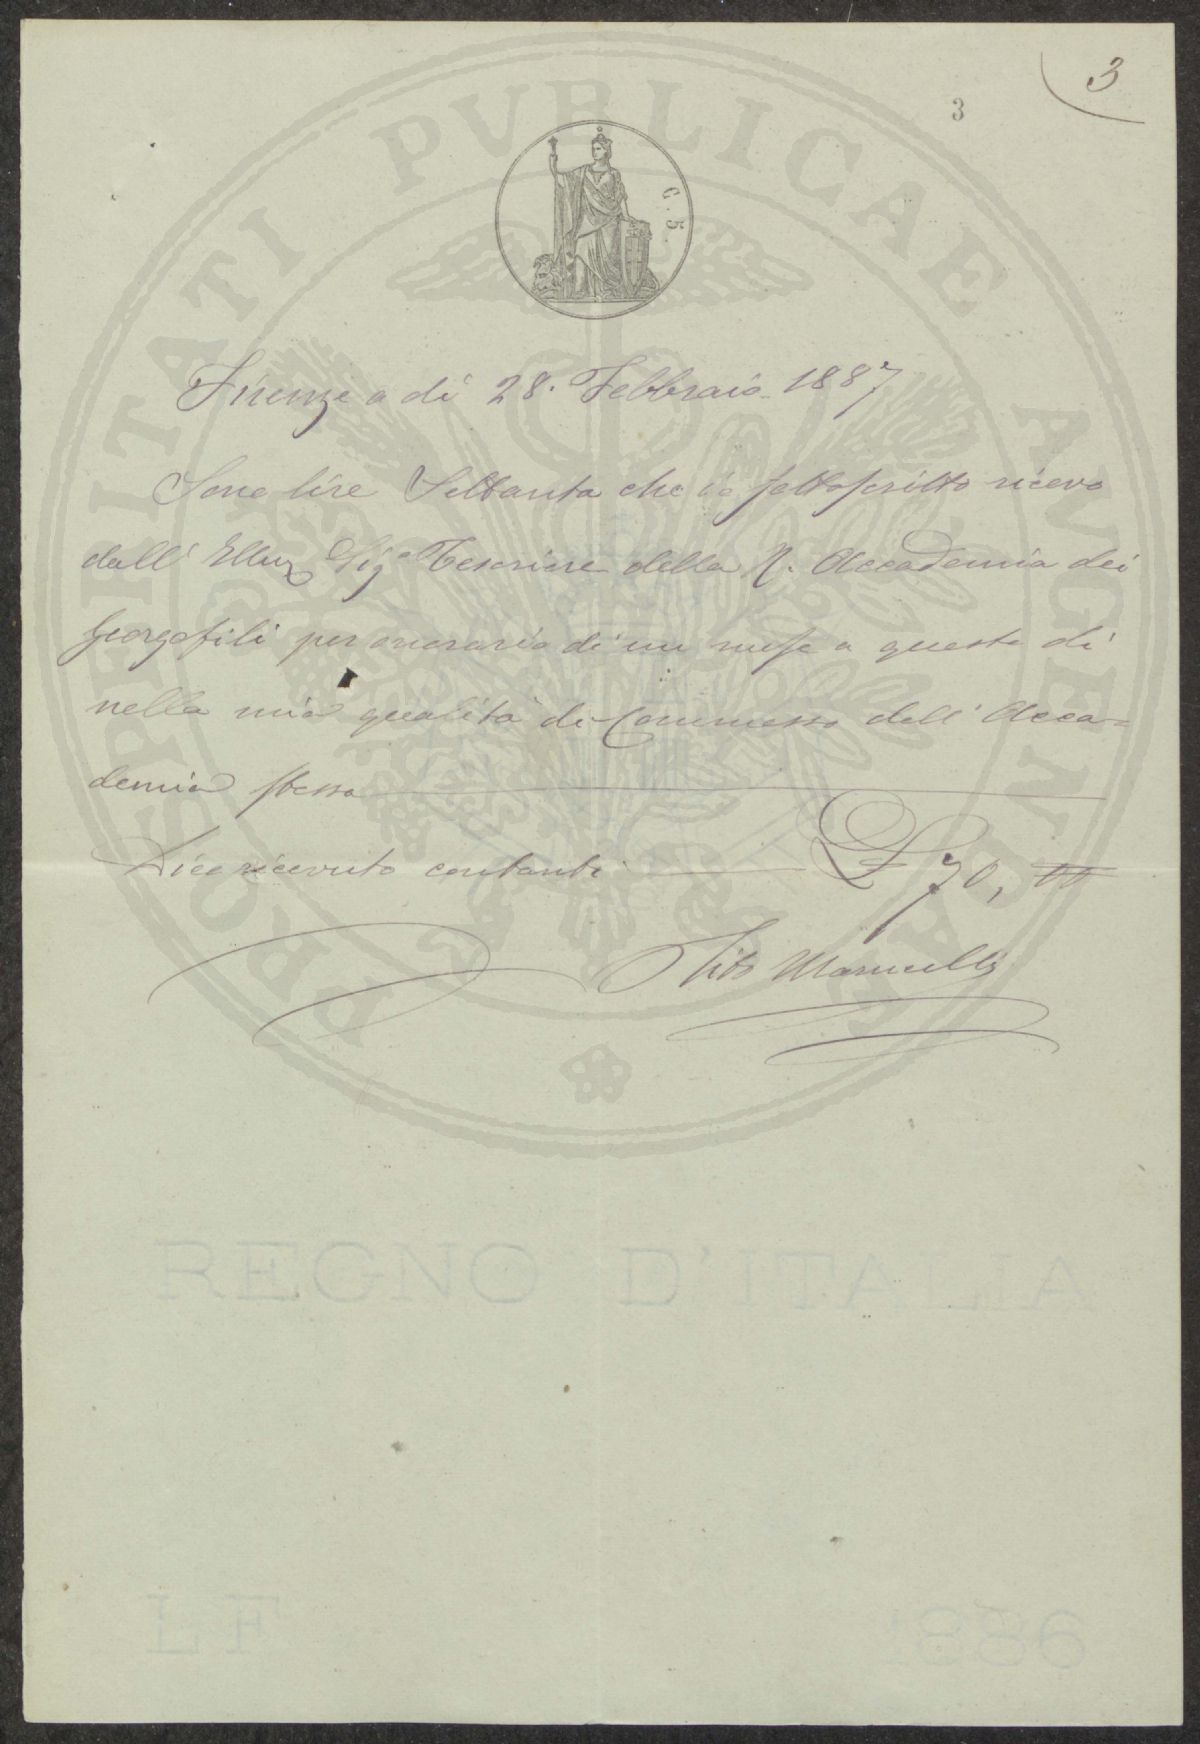 3
3
C. 5.
PROSPERITATI PUBLICAE AUGENDAE
Firenze a di 28. Febbraio 1887
Sono lire Settanta che io sottoscritto ricevo
dall' Illmo Sig.e Tesoriere della R. Accademia dei
Georgofili per onorario di un mese a questo dì
nella mia qualità di Commesso dell' Acca=
demia stessa
Dico ricevuto contanti £ 70, 00
Tito Marucelli
REGNO D'ITALIA
LF 1886